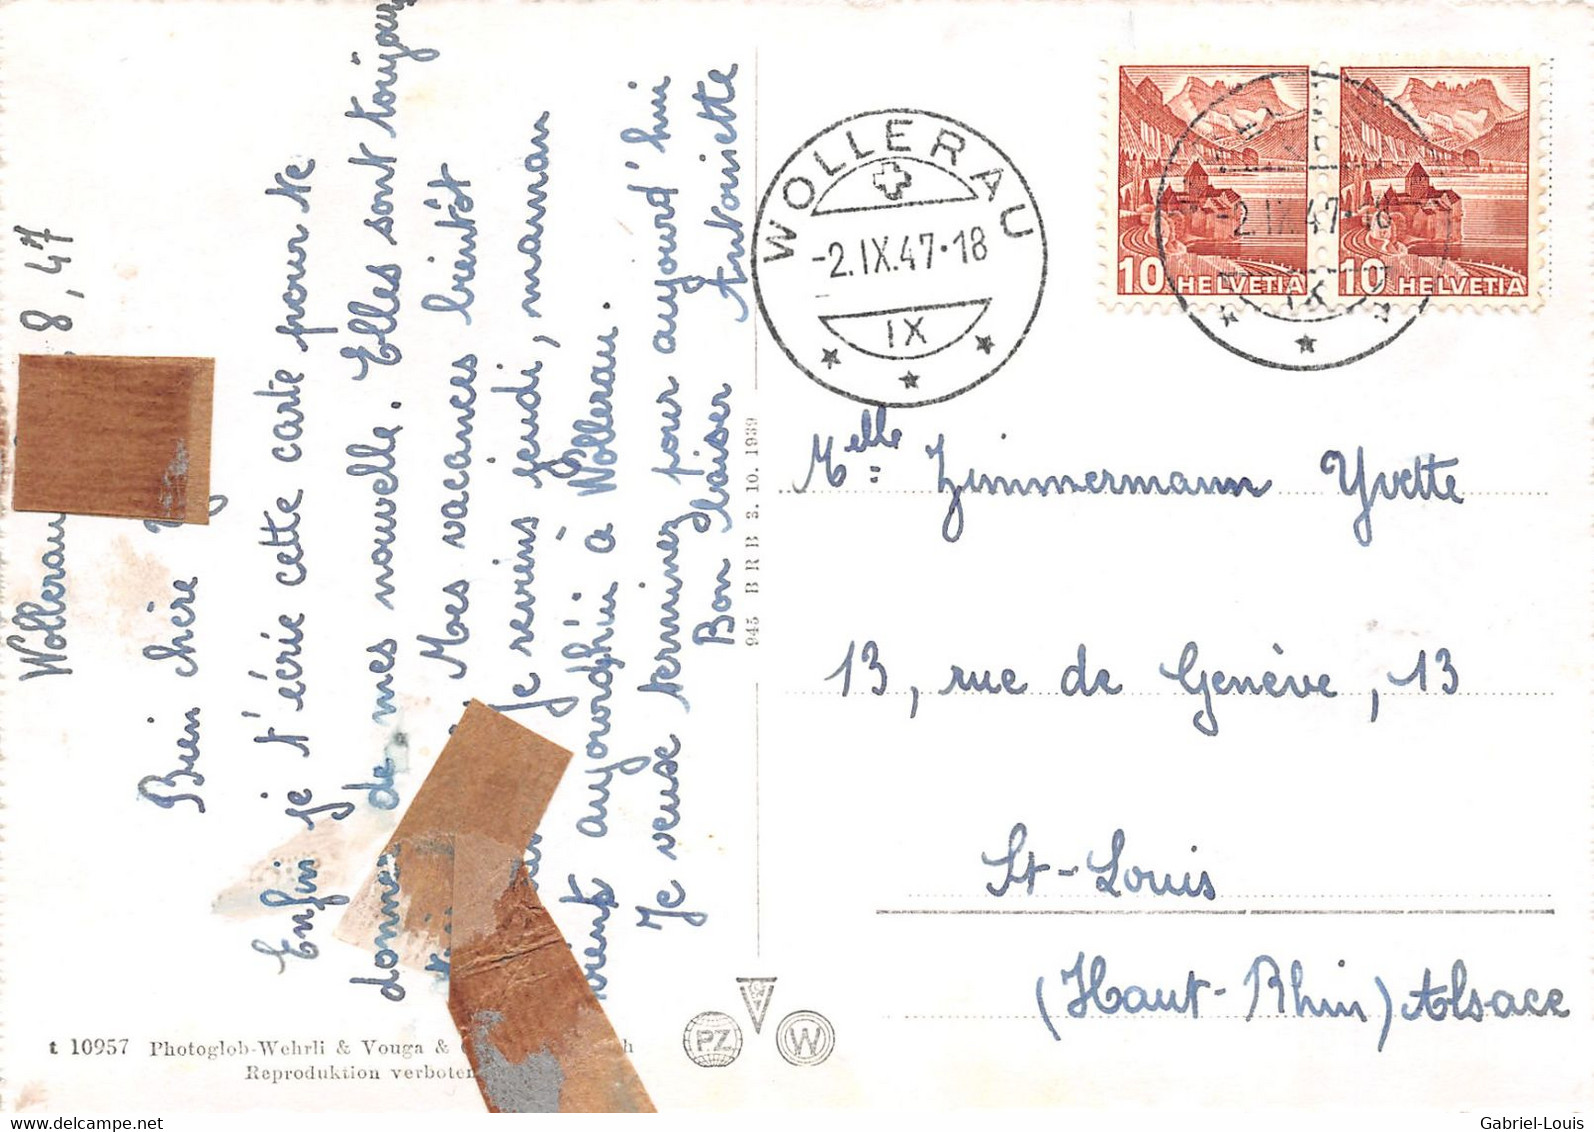 Wollerau 8, 47
Bien chère
Enfin je t'écrie cette carte pour te
donner de mes nouvelle. Elles sont toujours
Mes vacances bientôt
je reviens jeudi, maman
vient aujourdhui à Wollerau.
Je veux terminer pour aujourd'hui
Bon baiser Antoinette
t 10957 Photoglob-Wehrli & Vouga &
Reproduktion verboten
945 B R B 3. 10. 1939
PZ
W
WOLLERAU
-2.IX.47·18
IX
10 HELVETIA
10 HELVETIA
-2.IX.47·18
IX
Melle Zimmermann Yvette
13, rue de Genève, 13
St-Louis
(Haut-Rhin) Alsace
Gabriel-Louis